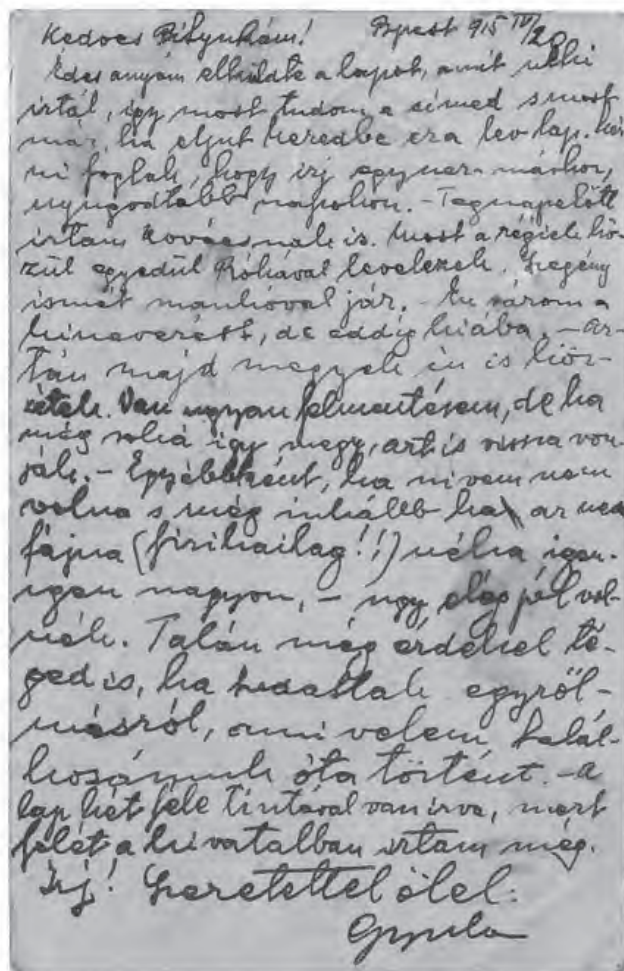 Kedves Bityukám! Bpest 915 IV/20
Édes anyám elküldte a lapot, amit neki
irtál, igy most tudom a cimed s most
már, ha eljut kezedbe ez a lev lap. kér-
ni foglak, hogy irj egyszer-máskor,
nyugodtabb napokon. – Tegnapelőtt
irtam Kovácsnak is. Most a régiek kö-
zül egyedül Rókával levelezek. Szegény
ismét mankóval jár. – Én várom a
kineverést, de eddig hiába. – Az-
tán majd megyek én is kö-
zétek. Van ugyan felmentésem, de ha
még soká igy megy, azt is vissza von-
ják. – Egyébként, ha szivem nem
volna s még inkább ha az nem
fájna (fizikailag!!) néha igen-
igen nagyon, – ugy elég jól vol-
nék. Talán még érdekel té-
ged is, ha tudatlak egyről-
másról, ami velem, talál-
kozásunk óta történt. – A
lap két féle tintával van irva, mert
felét a hivatalban irtam még.
Irj! Szeretettel ölel:
Gyula